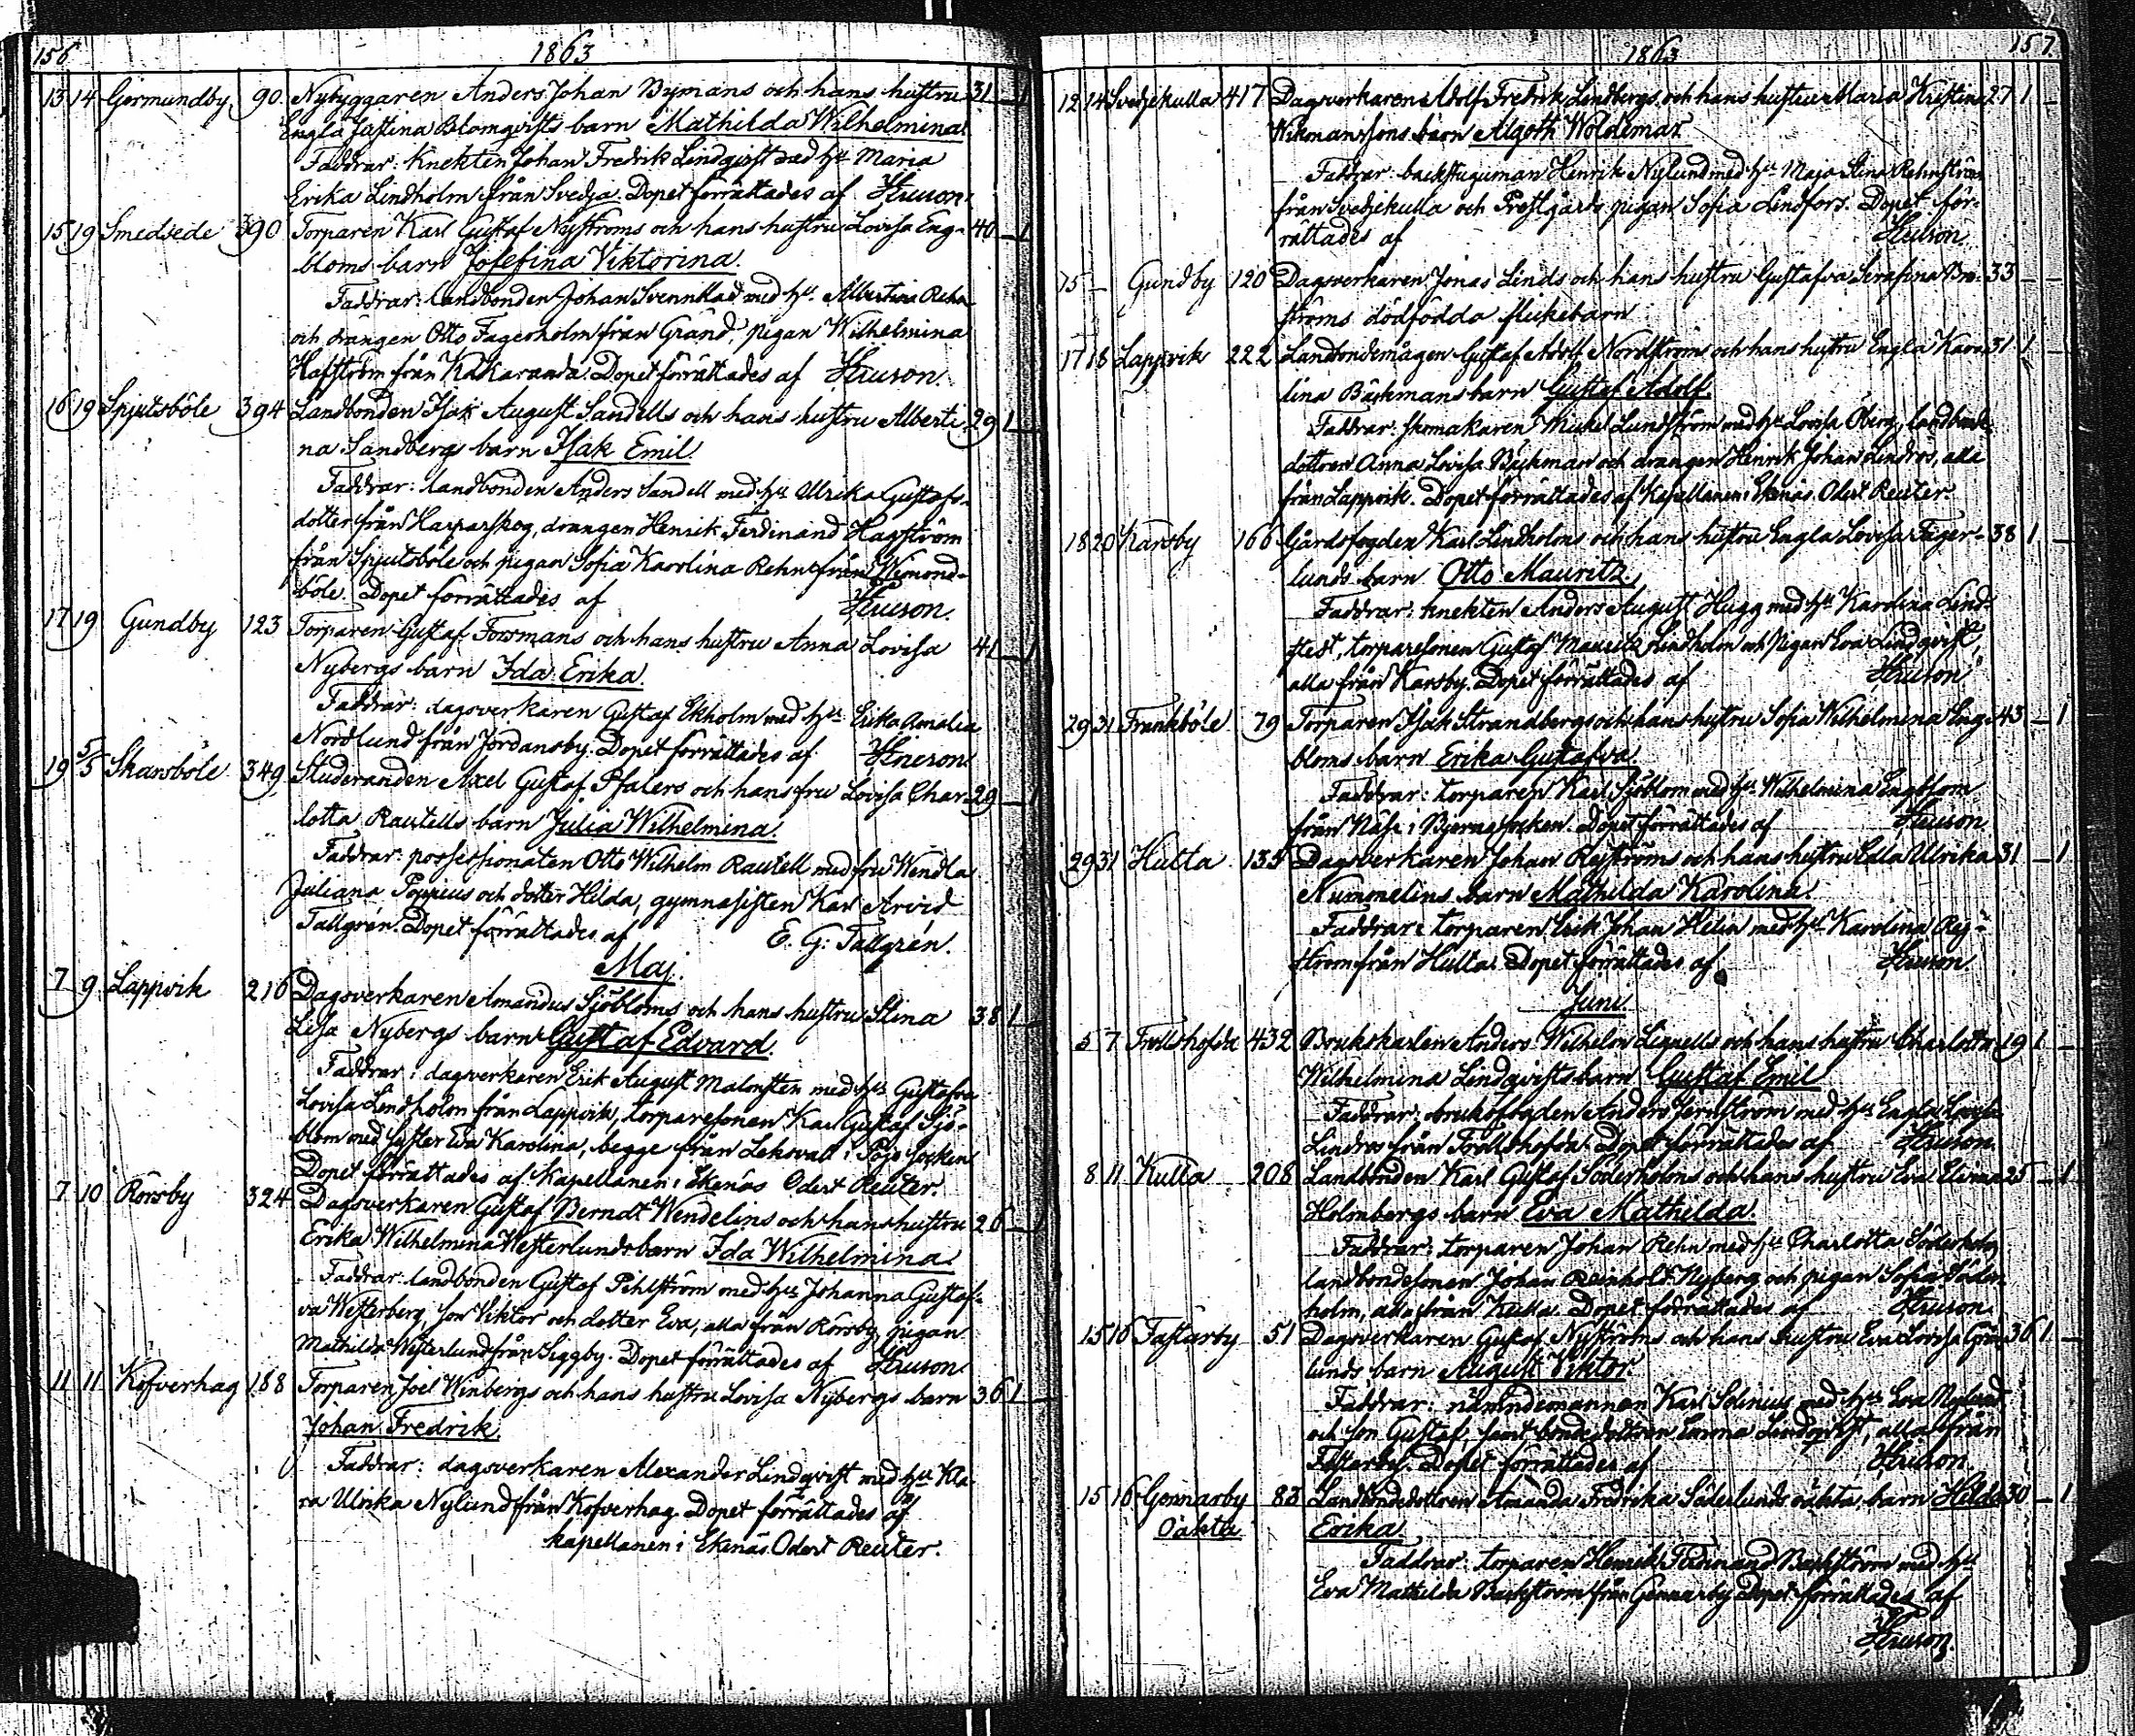 156
1863
13 14 Germundby 90. Nybyggaren Anders Johan Nymans och hans hustru 31 – 1
Engla Justina Blomqvists barn Mathilda Wilhelmina.
Faddrar: Knekten Johan Fredrik Lindqvist med hu Maria
Erika Lindholm från Svedja. Dopet förrättades af
15 19 Smedsede 390 Torparen Karl Gustaf Nyströms och hans hustru Lovisa Eng- 40 – 1
bloms barn Josefina Viktorina.
Faddrar: landbonden Johan Svennblad med hu Albertina Rehn
och drängen Otto Fagerholm från Gränd, pigan Wilhelmina
Hafström från Kakaranda. Dopet förrättades af
16 19 Spjutsböle 394 Landbonden Isak August Sandells och hans hustru Alberti- 29 1 –
na Sandbergs barn Isak Emil.
Faddrar: landbonden Anders Sandell med hu Ulrika Gustafs-
dotter från Harparskog, drängen Henrik Ferdinand Hagström
från Spjutsböle och pigan Sofia Karolina Rehn från Wimond-
böle. Dopet förrättades af
17 19 Gundby 123 Torparen Gustaf Forsmans och hans hustru Anna Lovisa 41 – 1
Nybergs barn Ida Erika.
Faddrar: dagsverkaren Gustaf Ekholm med hu Erika Amalia
Nordlund från Jordansby. Dopet förrättades af
19 5/5 Skarsböle 349 Studeranden Axel Gustaf Pfalers och hans fru Lovisa Char- 29 – 1
lotta Rautells barn Julia Wilhelmina.
Faddrar: possessionaten Otto Wilhelm Rautell med fru Wendla
Juliana Poppius och dotter Hilda, gymnasisten Karl Arvid
Tallgrén. Dopet förrättades af E. G. Tallgrén.
Maj.
7 9 Lappvik 216 Dagsverkaren Amandus Sjöbloms och hans hustru Stina 38 1 –
Lisa Nybergs barn Gustaf Edvard.
Faddrar: dagsverkaren Erik August Malmsten med hu Gustafva
Lovisa Lindholm från Lappvik, torparesonen Karl Gustaf Sjö-
blom med syster Eva Karolina, begge från Leksvall i Pojo socken
Dopet förrättades af Kapellanen i Ekenäs Odert Reuter.
7 10 Rörsby 324 Dagsverkaren Gustaf Berndt Wendelins och hans hustru 26 – 1
Erika Wilhelmina Westerlunds barn Ida Wilhelmina.
Faddrar: landbonden Gustaf Pihlström med hu Johanna Gustaf-
va Westerberg, son Viktor och dotter Eva, alla från Rörsby, pigan
Mathilda Westerlund från Siggby. Dopet förrättades af
11 11 Kofverhag 188 Torparen Joel Winbergs och hans hustru Lovisa Nybergs barn 36 1 –
Johan Fredrik.
Faddrar: dagsverkaren Alexander Lindqvist med hu Kla-
ra Ulrika Nylund från Kofverhag. Dopet förrättades af
kapellanen i Ekenäs Odert Reuter.
157
1863
12 14 Svedjekulla 417 Dagsverkaren Adolf Fredrik Lindbergs och hans hustru Maria Kristina 27 1 –
Wikmanssons barn Algoth Woldemar
Faddrar: backstuguman Henrik Nylund med hu Maja Stina Rehnström
från Svedjekulla och Prestgårds pigan Sofia Lindfors. Dopet för-
rättades af
15 – Gundby 120 Dagsverkaren Jonas Linds och hans hustru Gustafva Serafina 33 – –
ströms dödfödda flickebarn
17 18 Lappvik 222 Landbondemågen Gustaf Adolf Nordströms och hans hustru Engla Karo- 31 1 –
lina Bäckmans barn Gustaf Adolf.
Faddrar: skomakaren Mickel Lundström med hu Lovisa Öberg, landbonde-
dottren Anna Lovisa Bäckman och drängen Henrik Johan Lindros, alla
från Lappvik. Dopet förrättades af Kapellanen i Ekenäs Odert Reuter.
18 20 Karsby 166 Gårdsfogden Karl Lindholms och hans hustru Engla Lovisa Tiger- 38 1 –
lunds barn Otto Mauritz
Faddrar: knekten Anders August Hugg med hu Karolina Lind-
stedt, torparesonen Gustaf Mauritz Lindholm och pigan Eva Lindqvist,
alla från Karsby. Dopet förrättades af
29 31 Frankböle 79 Torparen Isak Strandbergs och hans hustru Sofia Wilhelmina Eng- 43 – 1
bloms barn Erika Gustafva.
Faddrar: torparen Karl Sjöblom med hu Wilhelmina Engblom
från Näse i Bjerno socken. Dopet förrättades af
29 31 Hulta 135 Dagsverkaren Johan Rejströms och hans hustru Edla Ulrika 31 – 1
Nummelins barn Mathilda Karolina.
Faddrar: torparen Erik Johan Helin med hu Karolina Rej-
ström från Hulta. Dopet förrättades af
Juni.
5 7 Trollshofda 432 Brukskarlen Anders Wilhelm och hans hustru Charlotta 19 1 –
Wilhelmina Lindqvists barn Gustaf Emil
Faddrar: bruksfogden Anders Jernström med hu Engla Lovisa
Lindros från Trollshofda. Dopet förrättades af
8 11 Kulla 208 Landbonden Karl Gustaf Söderholms och hans hustru Eva Elvina 25 – 1
Holmbergs barn Eva Mathilda.
Faddrar: torparen Johan Rehn med hu Charlotta Söderholm,
landbondesonen Johan Reinhold Nyberg och pigan Sofia Söder-
holm, alla från Kulla. Dopet förrättades af
15 16 Fastarby 51 Dagsverkaren Gustaf Nyströms och hans hustru Eva Lovisa Grön- 36 1 –
lunds barn August Viktor.
Faddrar: nämndemannen Karl Solinius med hu Eva Nylund
och son Gustaf, samt bondedottren Emma Lindqvist, alla från
Fastarby. Dopet förrättades af
15 16 Gennarby 83 Landbondedottren Amanda Fredrika Söderlunds oäkta barn Hilda 30 – 1
Oäkta Erika.
Faddrar: torparen Henrik Ferdinand Backström med hu
Eva Mathilda Backström från Gennarby. Dopet förrättades af